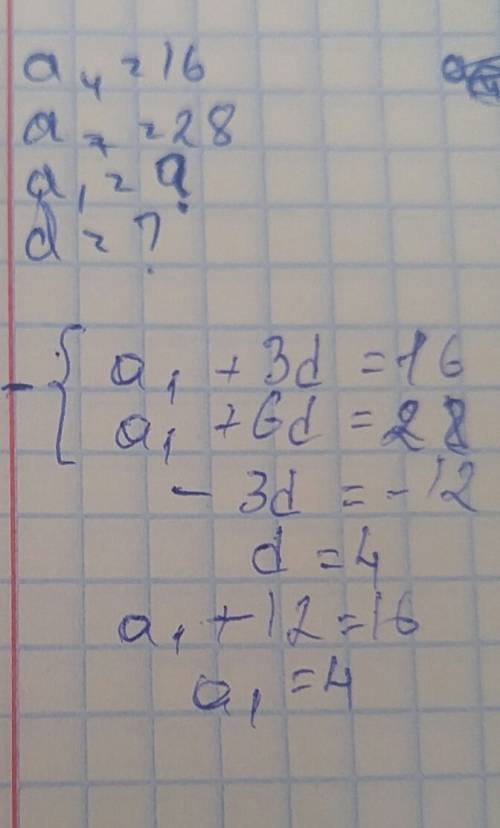 a₄ = 16
a₇ = 28
a₁ = ?
d = ?
- { a₁ + 3d = 16
a₁ + 6d = 28
- 3d = -12
d = 4
a₁ + 12 = 16
a₁ = 4